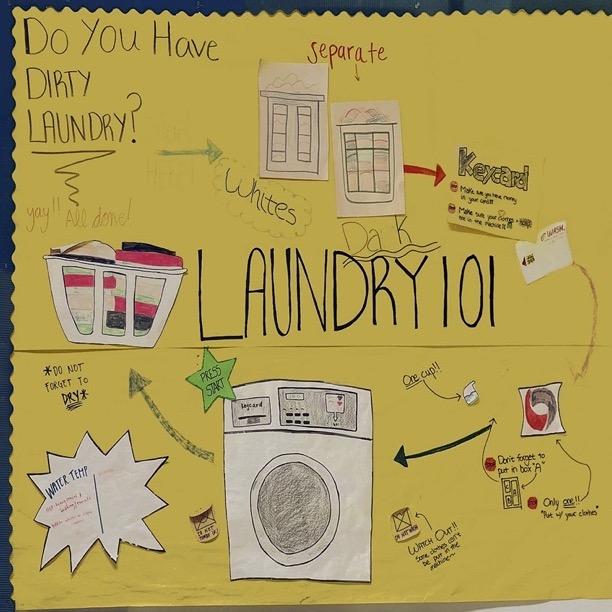 Do You Have
DIRTY
LAUNDRY?
separate
Whites
Dark
Keycard
Make sure you have money
in your card!!
Make sure your clothes
are in the machine!!
yay!! All done!
LAUNDRY 101
*DO NOT
FORGET TO
DRY*
PRESS
START
keycard
One cup!!
Don't forget to
put in box "A"
Only one!!
"Put w/ your clothes"
WATER TEMP
WATCH OUT!!
Some clothes can't
be put in the
machine~